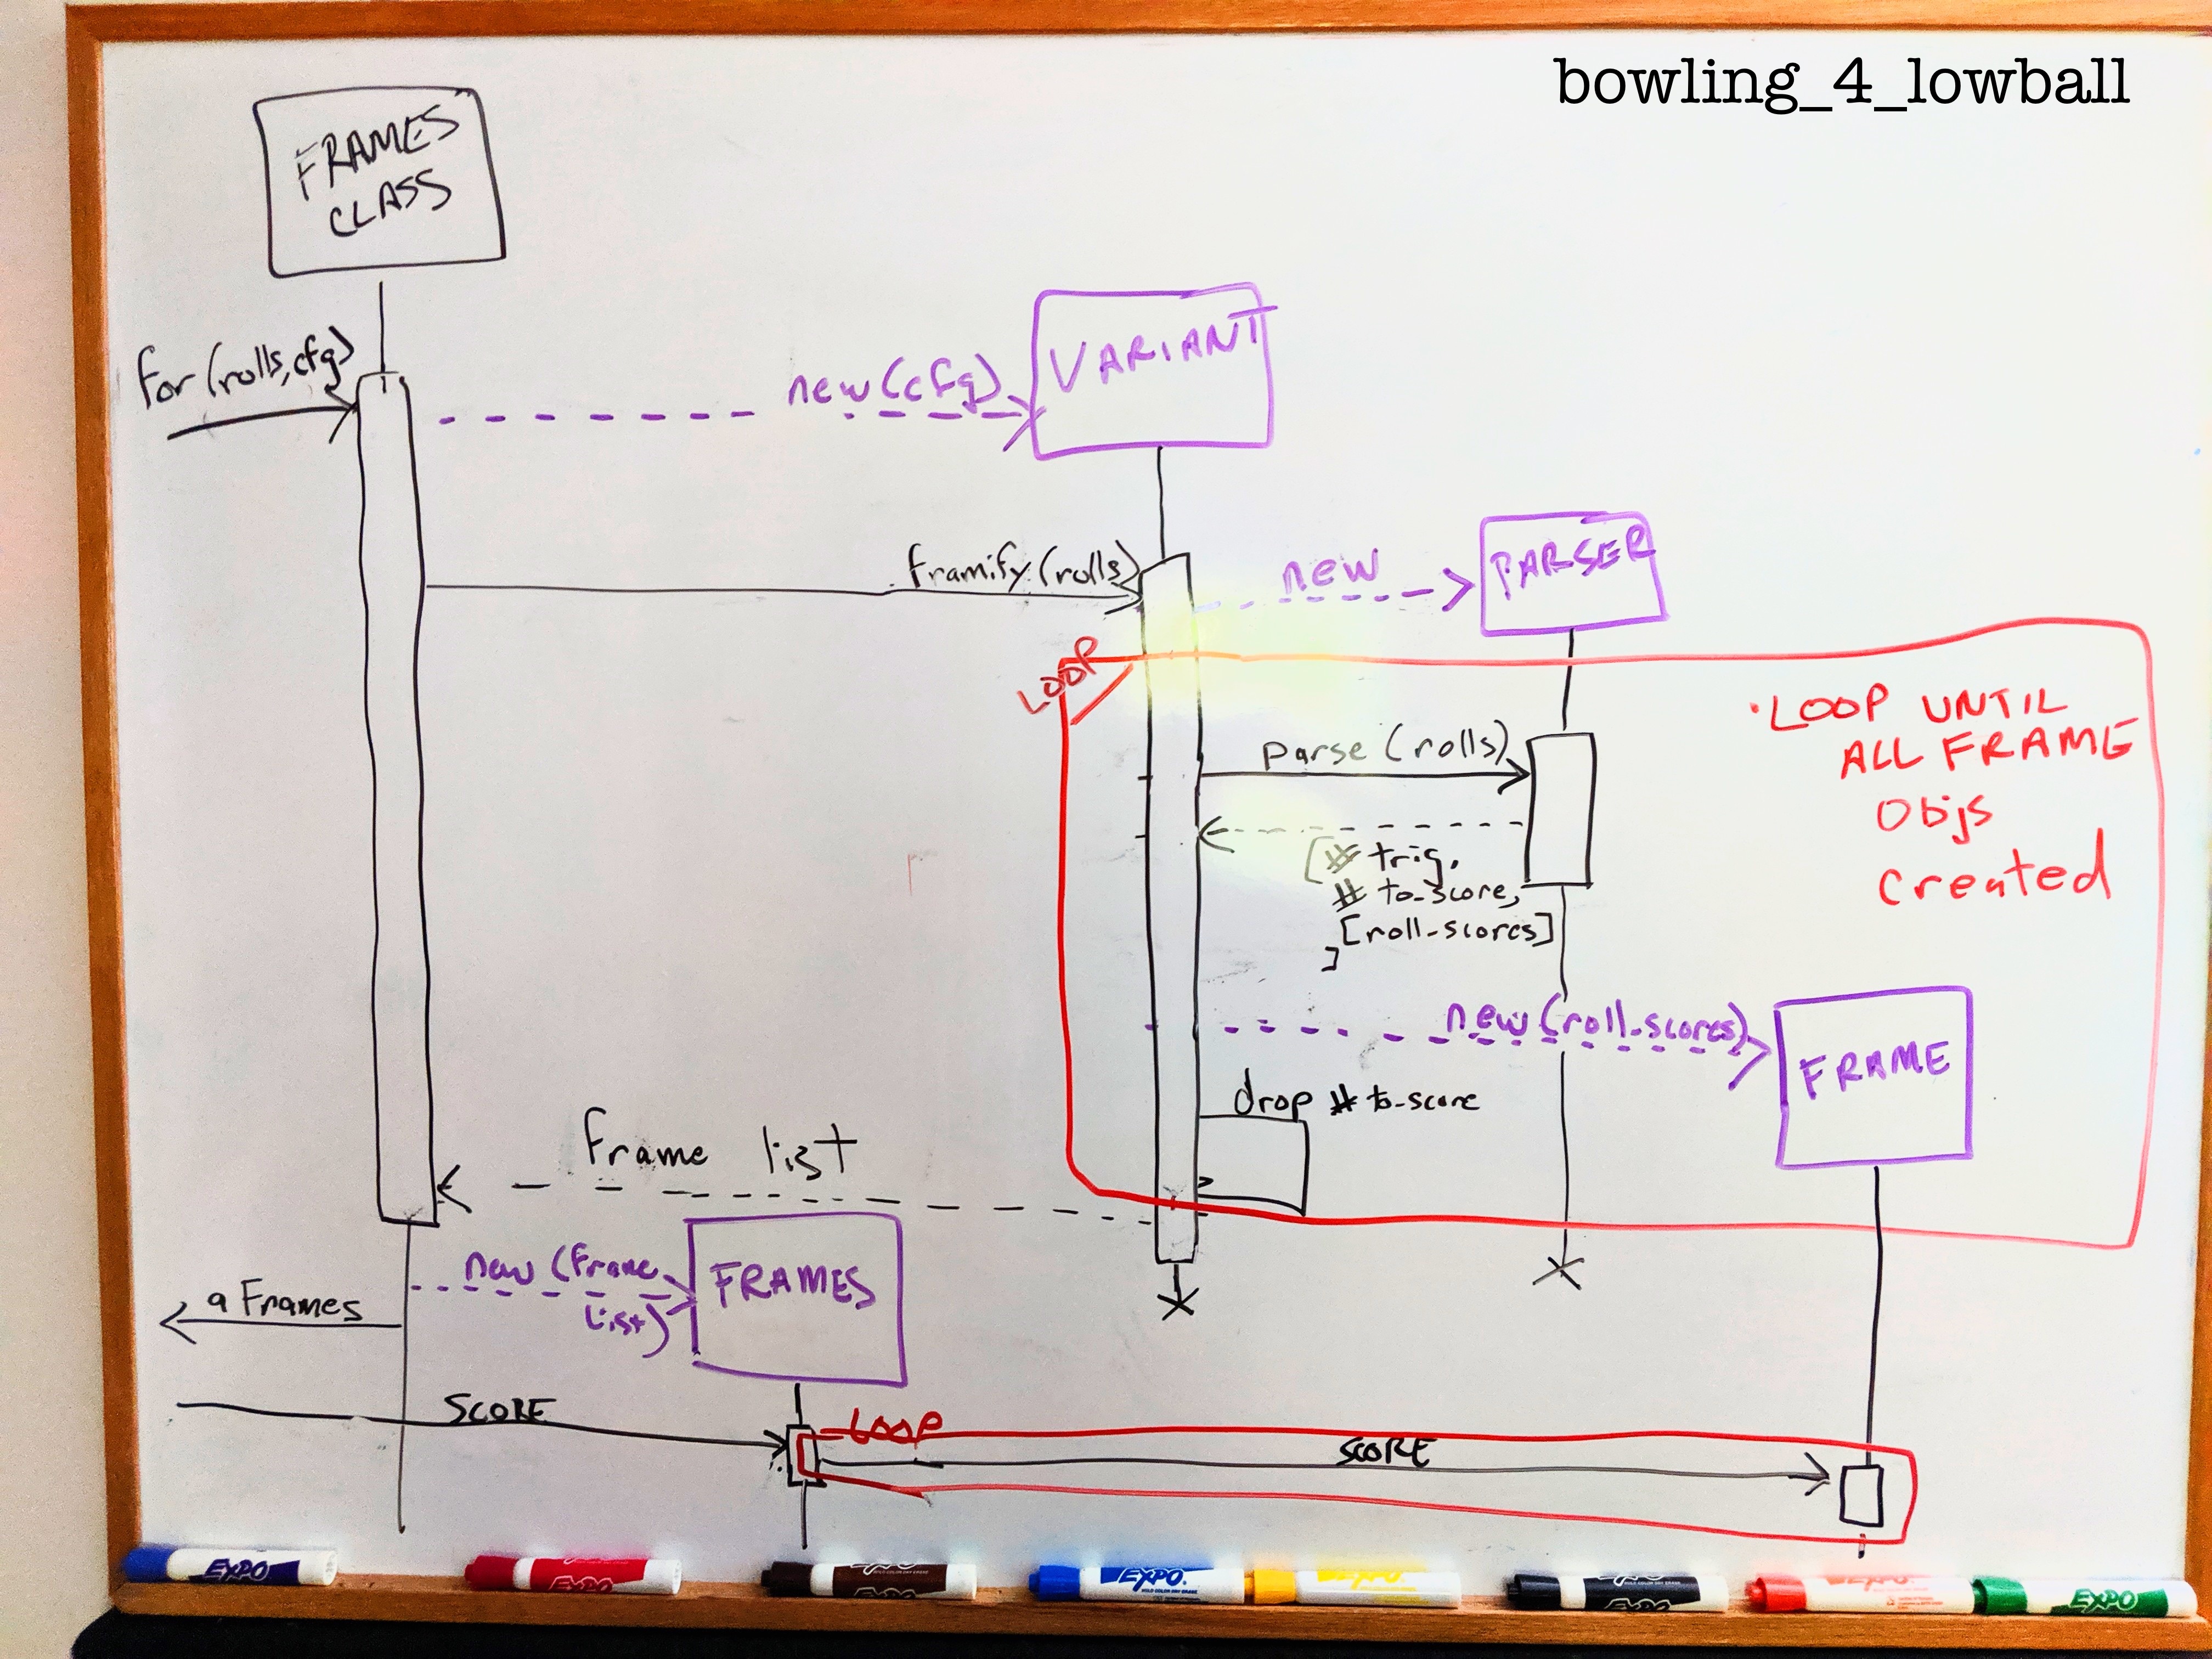 bowling_4_lowball
FRAMES
CLASS
for (rolls, cfg)
new (cfg)
VARIANT
framify (rolls)
new
PARSER
LOOP
• LOOP UNTIL
ALL FRAME
Objs
Created
parse (rolls)
[# trig,
# to_score,
[roll-scores]
]
new (roll-scores)
FRAME
drop # to-score
Frame list
new (Frame
list)
FRAMES
a Frames
SCORE
LOOP
SCORE
EXPO
EXPO
EXPO
EXPO.
EXPO.
EXPO
EXPO
EXPO